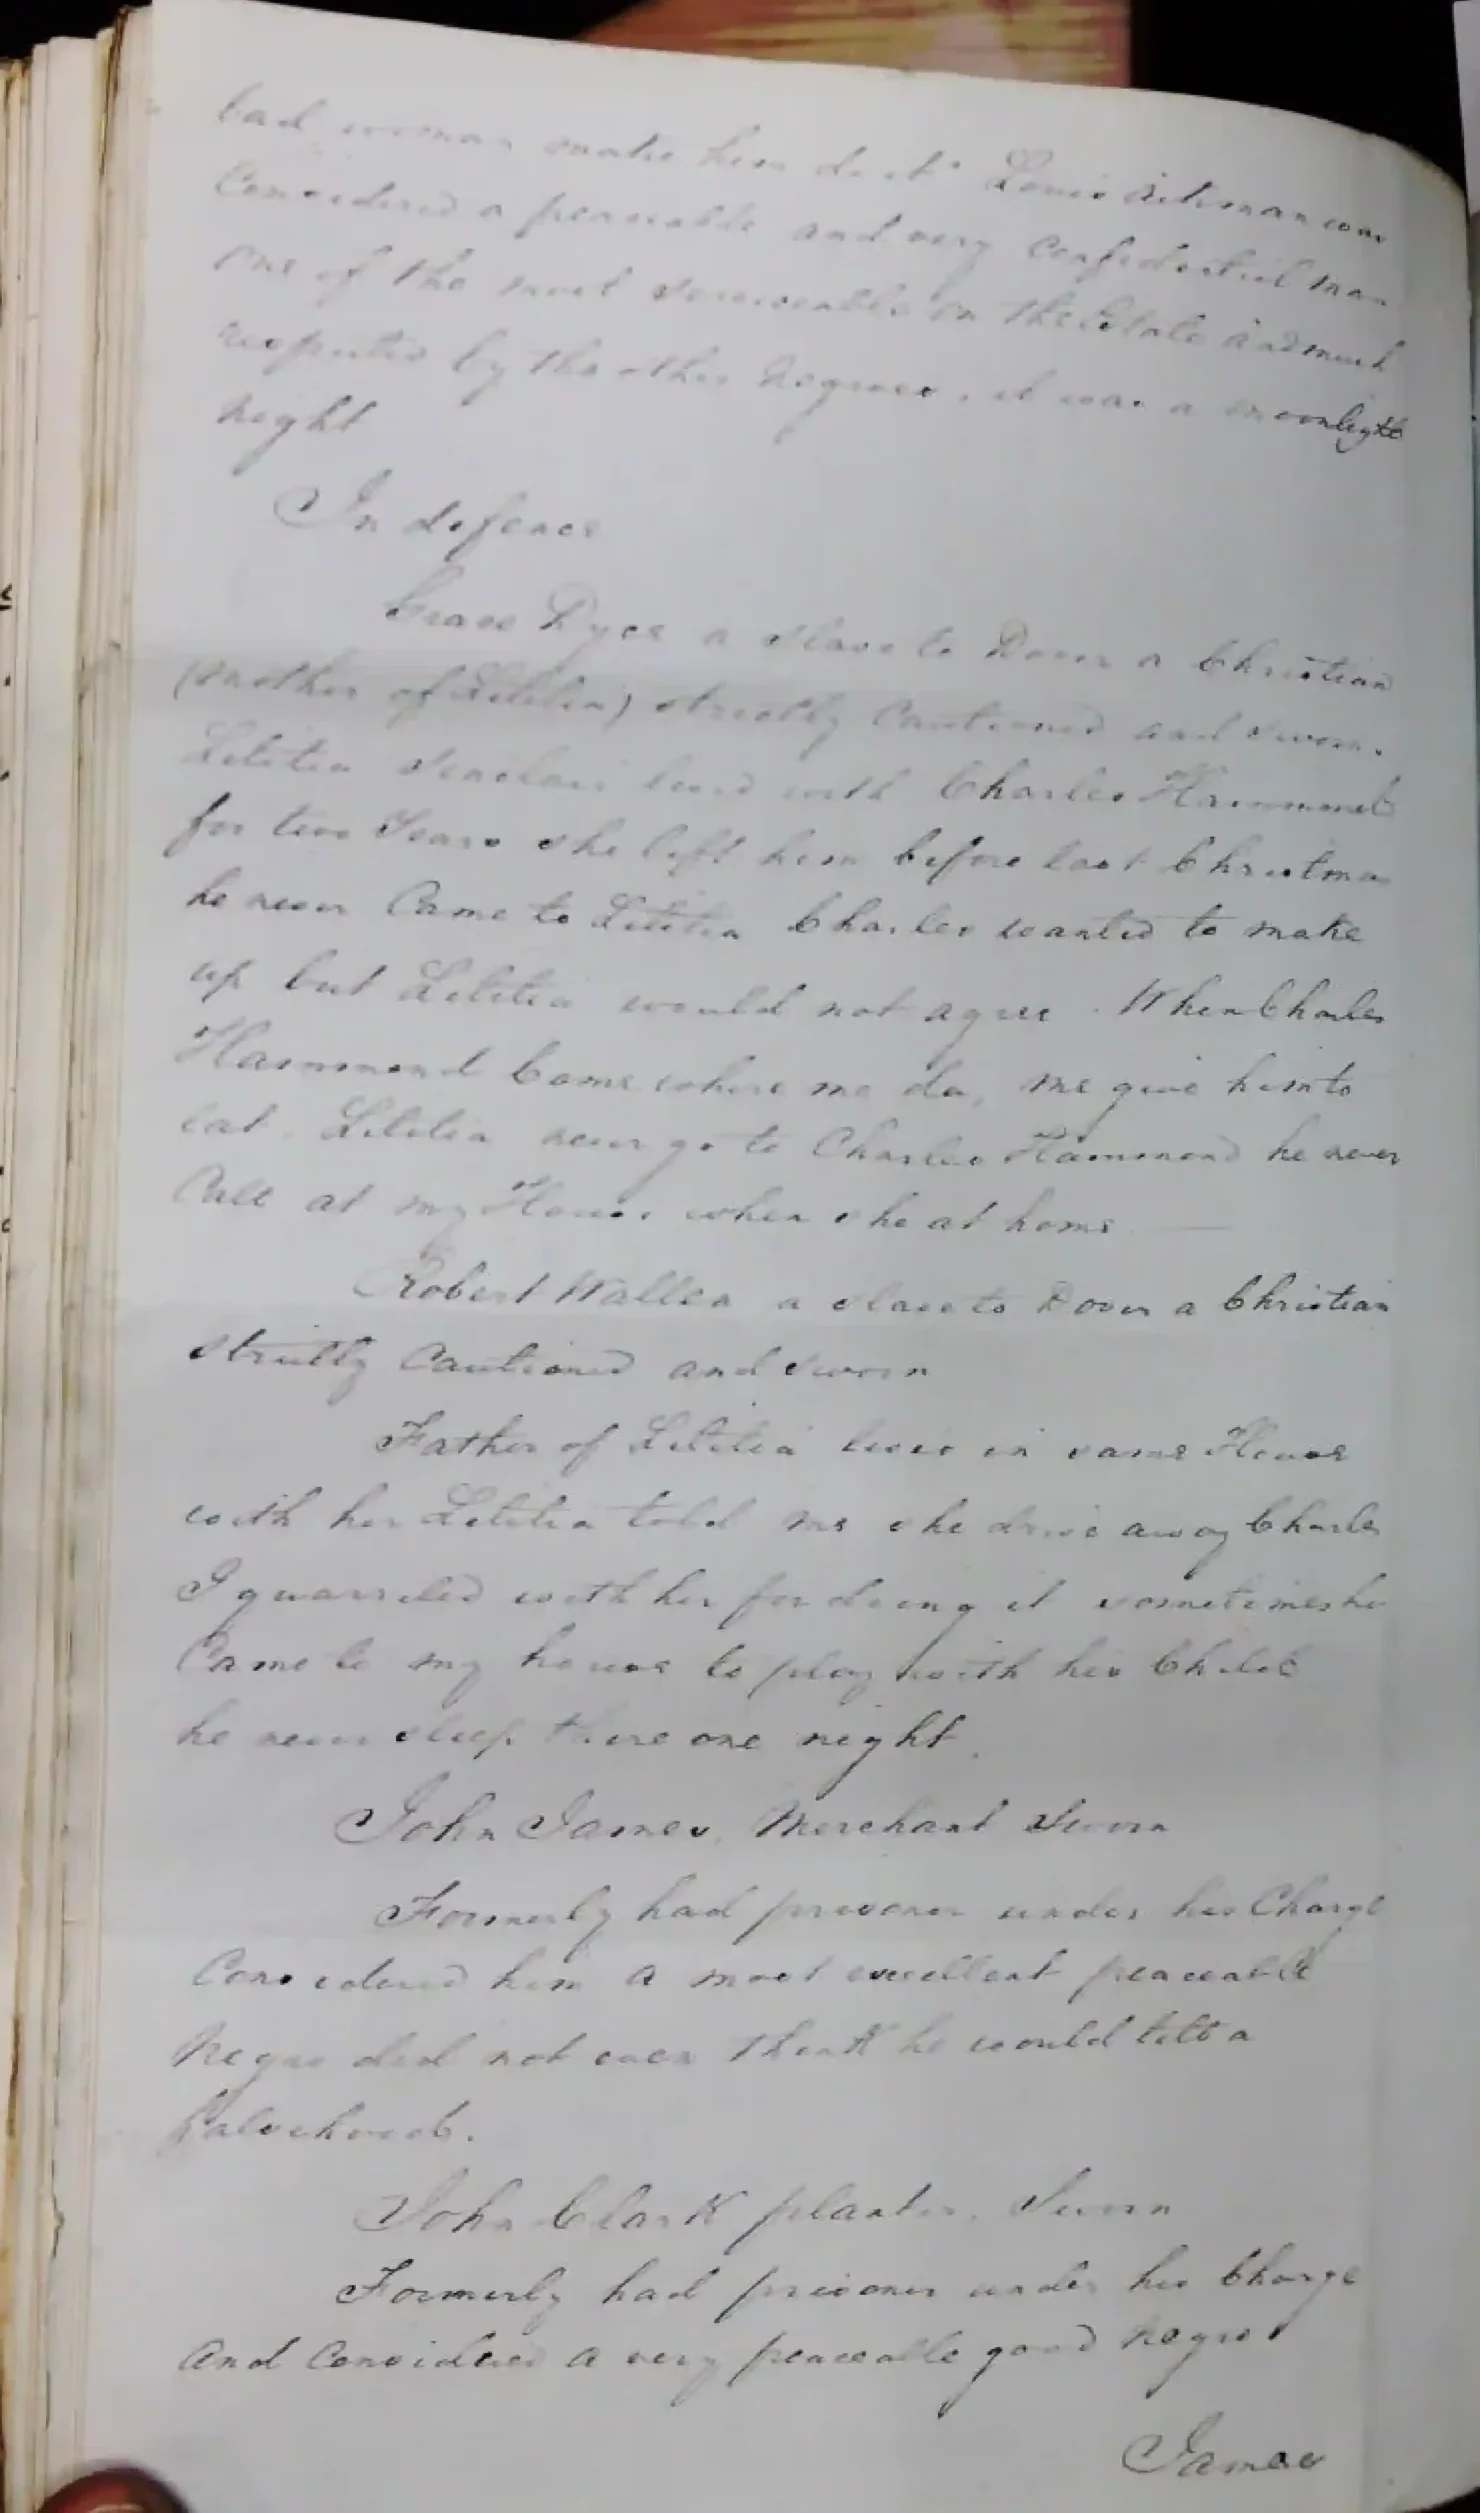 bad woman make him do it. Louis Aikman was
Considered a peaceable and very Confidential man
one of the most serviceable on the Estate and much
respected by the other Negroes, it was a moonlight
night
In defence
Grace Dyce a slave to Dover a Christian
(mother of Letitia) strictly Cautioned and sworn.
Letitia Sinclair lived with Charles Hammond
for two Years she left him before last Christmas
he never Came to Letitia Charles wanted to make
up but Letitia would not agree. When Charles
Hammond Come where me da, me give him to
eat. Letitia never go to Charles Hammond he never
Call at my House when she at home
Robert Wallen a slave to Dover a Christian
strictly Cautioned and sworn
Father of Letitia lives in same House
with her Letitia told me she drive away Charles
I quarreled with her for doing it sometimes he
Came to my house to play with his Child
he never sleep there one night.
John James, Merchant Sworn
Formerly had prisoner under his Charge
Considered him a most excellent peaceable
Negro did not even think he would tell a
falsehood.
John Clark planter, Sworn
Formerly had prisoner under his Charge
And Considered a very peaceable good Negro
James